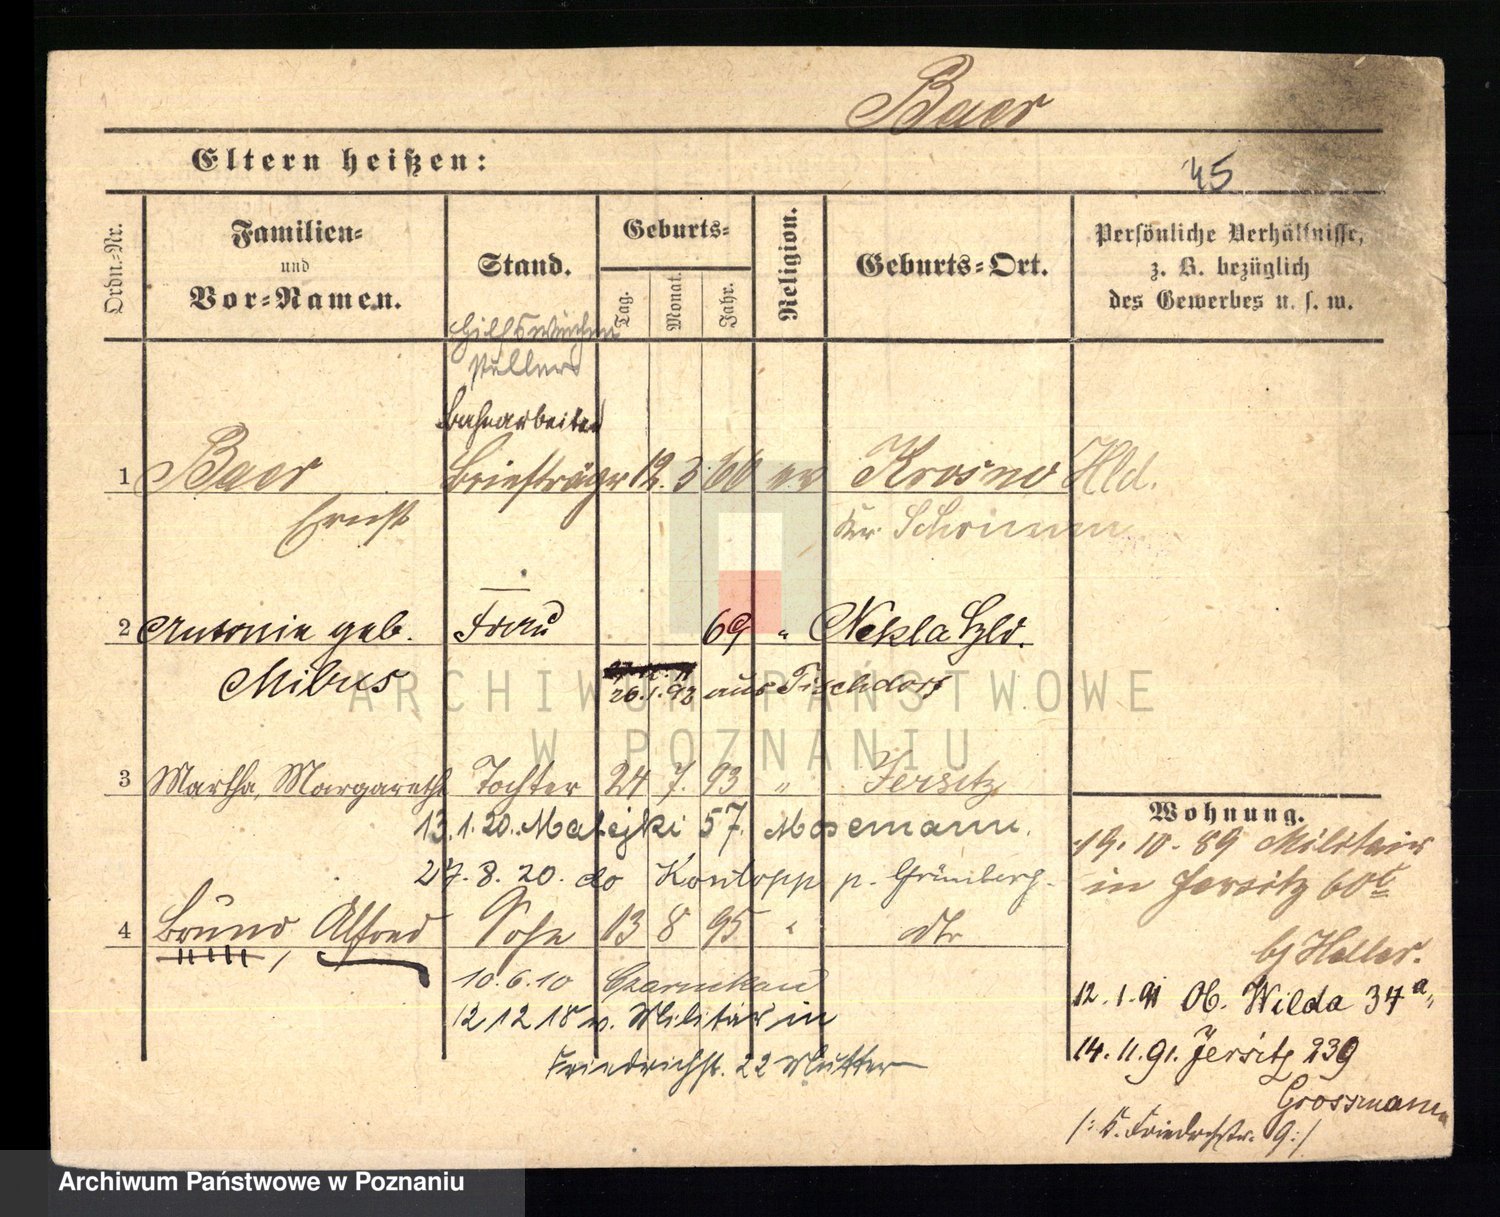 Baer
Eltern heißen:
45
Ordn.-Nr.
Familien-
und
Vor-Namen.
Stand.
Geburts-
Tag.
Monat.
Jahr.
Religion.
Geburts-Ort.
Persönliche Verhältnisse,
z. B. bezüglich
des Gewerbes u. s. w.
Bahnarbeiter
1 Baer Briefträger 12. 3. 60 ev Krosno Hld.
Ernst Kr. Schrimm
2 Antonie geb. Frau 69 " Nekla Hld.
Mibus 26.1.92 aus Tischdorf
3 Martha, Margareth Tochter 24 7. 93 " Jersitz
13.1.20. Matejki 57. Mosemann.
27.8.20. do Kontopp p. Grünberg.
4 Bruno, Alfred Sohn 13 8 95 " dto
10.6.10 Czarnikau
12 12 18 v. Militär in
Friedrichstr. 22 Mutter
Wohnung.
19. 10. 89 Militair
in Jersitz 60
bj Heller.
12. 1. 91 Ob. Wilda 34a,
14. 11. 91. Jersitz 239
Grossmann
/: K. Friedrichstr. 9 :/
ARCHIWUM PAŃSTWOWE
W POZNANIU
Archiwum Państwowe w Poznaniu